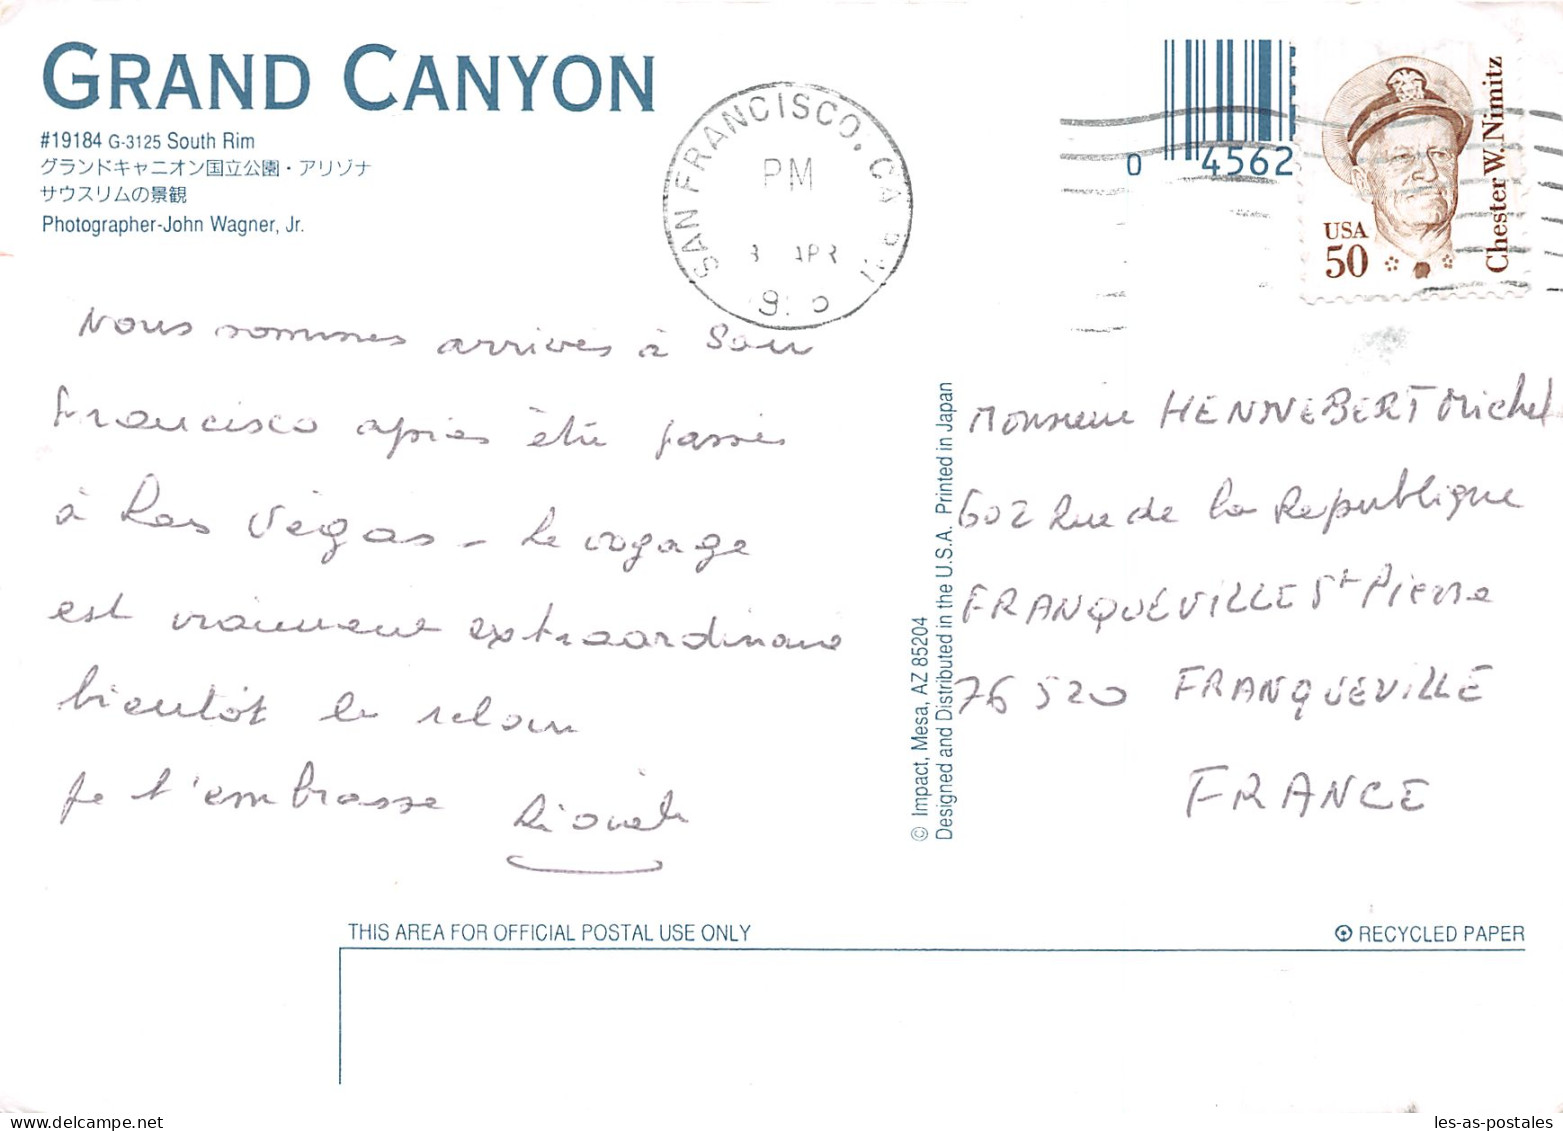 GRAND CANYON
#19184 G-3125 South Rim
グランドキャニオン国立公園・アリゾナ
サウスリムの景観
Photographer-John Wagner, Jr.
SAN FRANCISCO, CA
PM
APR
0 4562
USA
50
Chester W. Nimitz
Nous sommes arrivés à San
Francisco après être passés
à Las Végas - le voyage
est vraiment extraordinaire
bientôt le retour
je t'embrasse
Monsieur HENNEBERT Michel
602 Rue de la Republique
FRANQUEVILLE St Pierre
76520 FRANQUEVILLE
FRANCE
© Impact, Mesa, AZ 85204
Designed and Distributed in the U.S.A. Printed in Japan
THIS AREA FOR OFFICIAL POSTAL USE ONLY
RECYCLED PAPER
les-as-postales